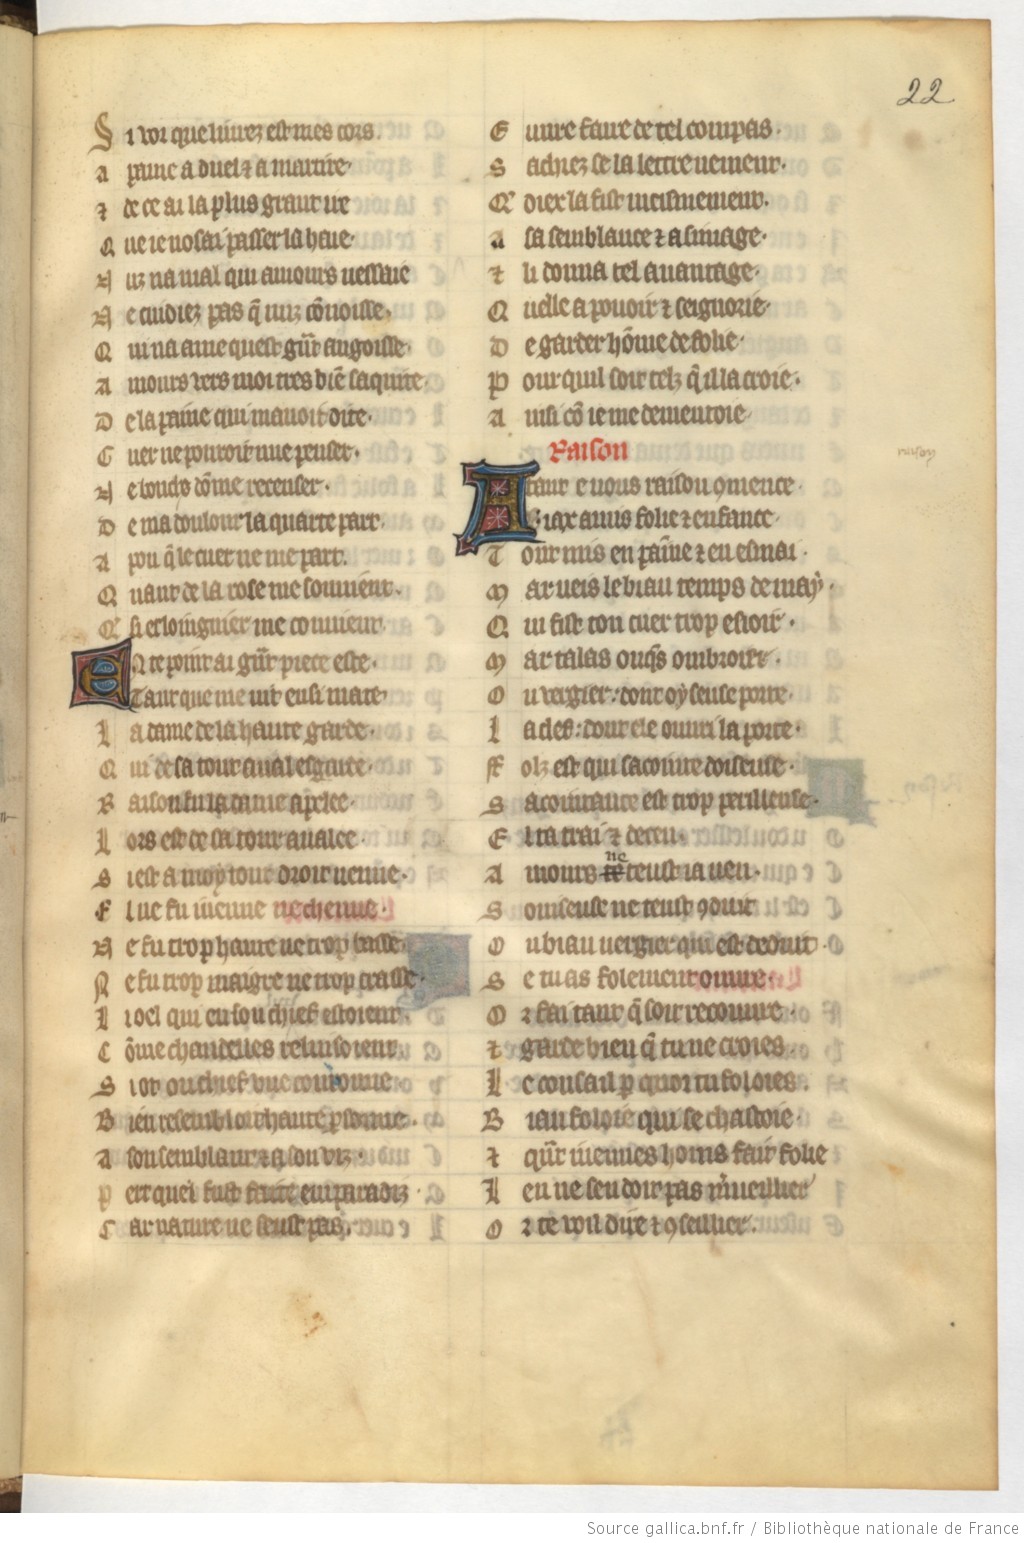 22
Si voi que liurez est mes cors
a paine a duel ⁊ a martire
⁊ de ce ai la plus grant ire
Que ie nosai passer la haie
Nuz na mal qui amours nessaie
Ne cuidiez pas q̃ nuz cõnoisse
Qui na ame quest gñt angoisse
Amours vers moi tres biẽ saquite
De la paine qui mauoit dite
Cuer ne pourroit mie penser
Ne bouche dõme recenser
De ma doulour la quarte part
A pou q̃ le cuer ne me part
Quant de la rose me souuient
Q' si esloingnier me couuient
En te point ai gñt piece este
Tant que me uit ensi mate
La dame de la haute garde
Qui de sa tour aual esgarde
Raison fu la dame apelee
Lors est de sa tour aualee
Si est a moy tout droit uenue
Elle fu ioenne ne chenue
Ne fu trop haute ne trop basse
Ne fu trop maigre ne trop crasse
Li oel qui en son chief estoient
Cõme chandelles reluisoient
Si ot ou chief vne couronne
Bien resembloit haute psonne
A son semblant ⁊ a son viz
Pert quel fust faite en paradiz
Car nature ne seust pas
Euure faire de tel compas
Sachiez se la lettre ne ment
Q' diex la fist meismement
A sa semblance ⁊ a simage
⁊ li donna tel auantage
Quelle a pouoir ⁊ seignorie
De garder hõme de folie
Pour quil soit telz q̃ il la croie
Ainsi cõ ie me dementoie
Raison
raison
Atant e vous raison 9mence
Biax amis folie ⁊ enfance
Tont mis en paine ⁊ en esmai
Mar veis le biau temps de may
Qui fist ton cuer trop esioir
Mar talas onqs ombroier
Ou vergier dont oyseuse porte
La clef dont ele ouuri la porte
Folz est qui sacointe doiseuse
Sacointance est trop perilleuse
El ta trai ⁊ deceu
Amours ne teust ia veu
Soiseuse ne teust 9duit
Ou biau uergier qui est deduit
Se tu as folement ouure
Or fai tant q̃ soit recouure
⁊ garde bien q̃ tu ne croies
Le consail p quoi tu foloies
Biau foloie qui se chastoie
⁊ qñt iuennes homs fait folie
Len ne sen doit pas m'ueillier
Or te voil dire ⁊ 9seillier
Source gallica.bnf.fr / Bibliothèque nationale de France